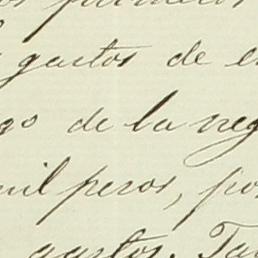 gastos de
go de la neg
mil pesos, por
gastos. Ta